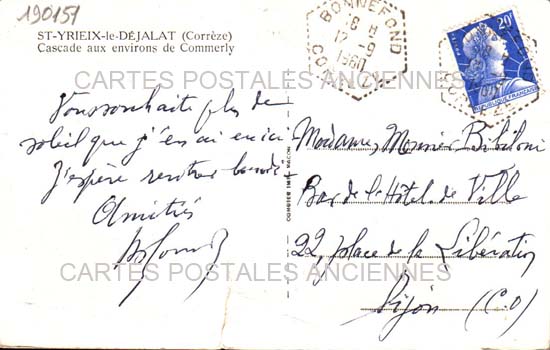 190151
ST-YRIEIX-le-DÉJALAT (Corrèze)
Cascade aux environs de Commerly
BONNEFOND
18 H
12 -9
1960
CORRÈZE
20F
RÉPUBLIQUE FRANÇAISE
CARTES POSTALES ANCIENNES
Vous souhaite plus de
soleil que j'en ai eu ici
J'espère rentrer
Amitiés
COMBIER IMP. MACON
Madame, Monsieur Bibiloni
Bar de l'Hôtel de Ville
22, place de la Libération
Dijon (C.O)
CARTES POSTALES ANCIENNES